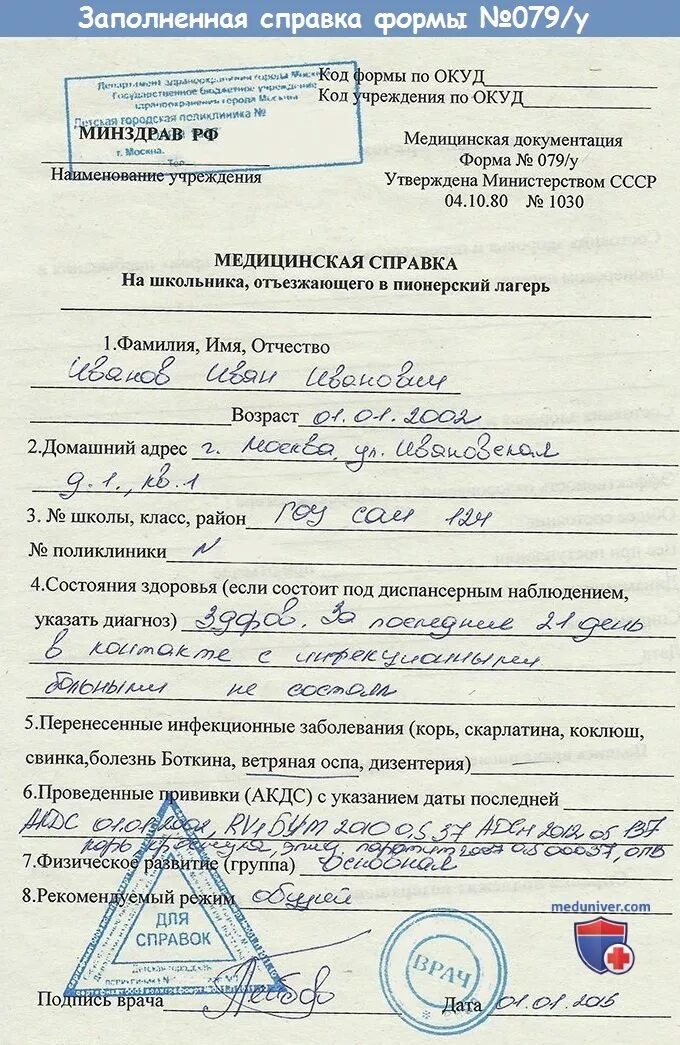 Заполненная справка формы №079/у
Департамент здравоохранения города Москвы
Государственное бюджетное учреждение
здравоохранения города Москвы
Детская городская поликлиника №
г. Москва,
Код формы по ОКУД
Код учреждения по ОКУД
МИНЗДРАВ РФ
Наименование учреждения
Медицинская документация
Форма № 079/у
Утверждена Министерством СССР
04.10.80 № 1030
МЕДИЦИНСКАЯ СПРАВКА
На школьника, отъезжающего в пионерский лагерь
1.Фамилия, Имя, Отчество
Иванов Иван Иванович
Возраст 01.01.2002
2.Домашний адрес г. Москва, ул. Ивановская
д.1., кв.1
3. № школы, класс, район ГОУ СОШ 124
№ поликлиники N
4.Состояния здоровья (если состоит под диспансерным наблюдением,
указать диагноз) Здоров. За последние 21 день
в контакте с инфекционными
больными не состоял
5.Перенесенные инфекционные заболевания (корь, скарлатина, коклюш,
свинка,болезнь Боткина, ветряная оспа, дизентерия)
6.Проведенные прививки (АКДС) с указанием даты последней
АКДС 01.01.2002, RV1 2010 0.5 37 АДСН 2012 05 137
корь, краснуха, эпид. паротит 2007 0.5 00037, ОПВ
7.Физическое развитие (группа) основная
8.Рекомендуемый режим общий
meduniver.com
ДЛЯ
СПРАВОК
Детская городская
ВРАЧ
Подпись врача
Дата 01.01.2015